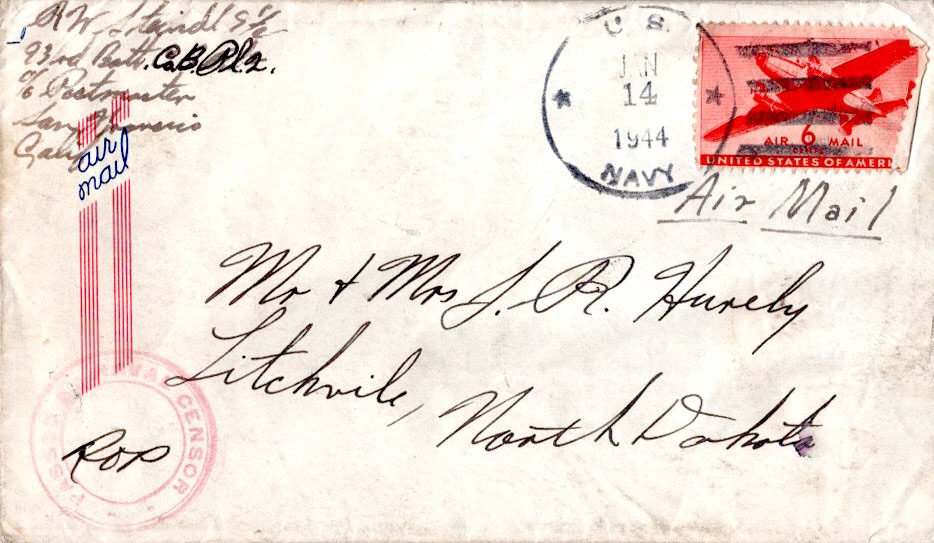 R W Steindl S 1/c
93rd Batt. Co.B. Pl.2.
c/o Postmaster
San
Calif
air
mail
U. S.
JAN
14
1944
NAVY
AIR 6 MAIL
CENTS
UNITED STATES OF AMERI
Air Mail
Mr & Mrs J. R. Hurely
Litchvile,
North Dakota
PASSED BY NAVAL CENSOR